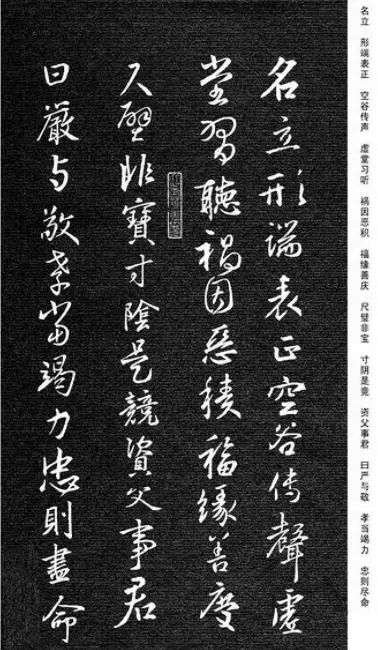 名立 形端表正 空谷传声 虚堂习听 祸因恶积 福缘善庆 尺璧非宝 寸阴是竞 资父事君 曰严与敬 孝当竭力 忠则尽命
名立形端表正空谷傳聲虛
堂習聽禍因惡積福緣善慶
尺璧非寶寸陰是競資父事君
曰嚴与敬孝當竭力忠則盡命